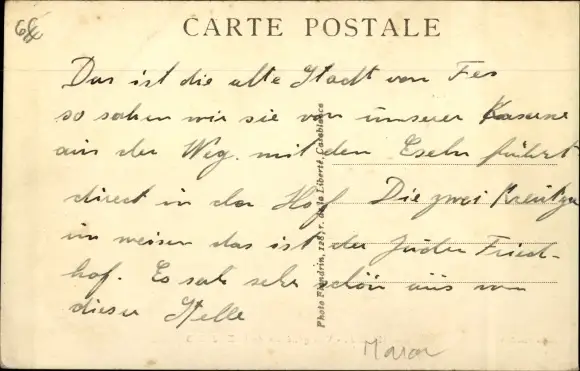 CARTE POSTALE
Das ist die alte Stadt von Fes
so sahen wir sie von unserer Kaserne
aus der Weg mit den Eseln führt
direct in den Hof Die zwei Kreuze
im weisen das ist der Juden Fried-
hof. Es sah sehr schön aus von
dieser Stelle
Photo Flandrin, 128, r. de la Liberté, Casablanca
Maroc